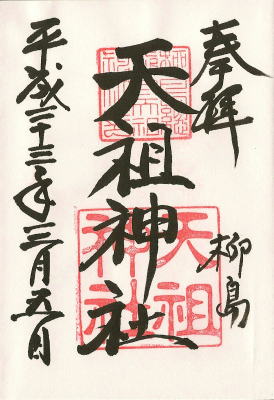 奉拝
柳島
天祖神社
天祖神社
平成二十三年三月五日